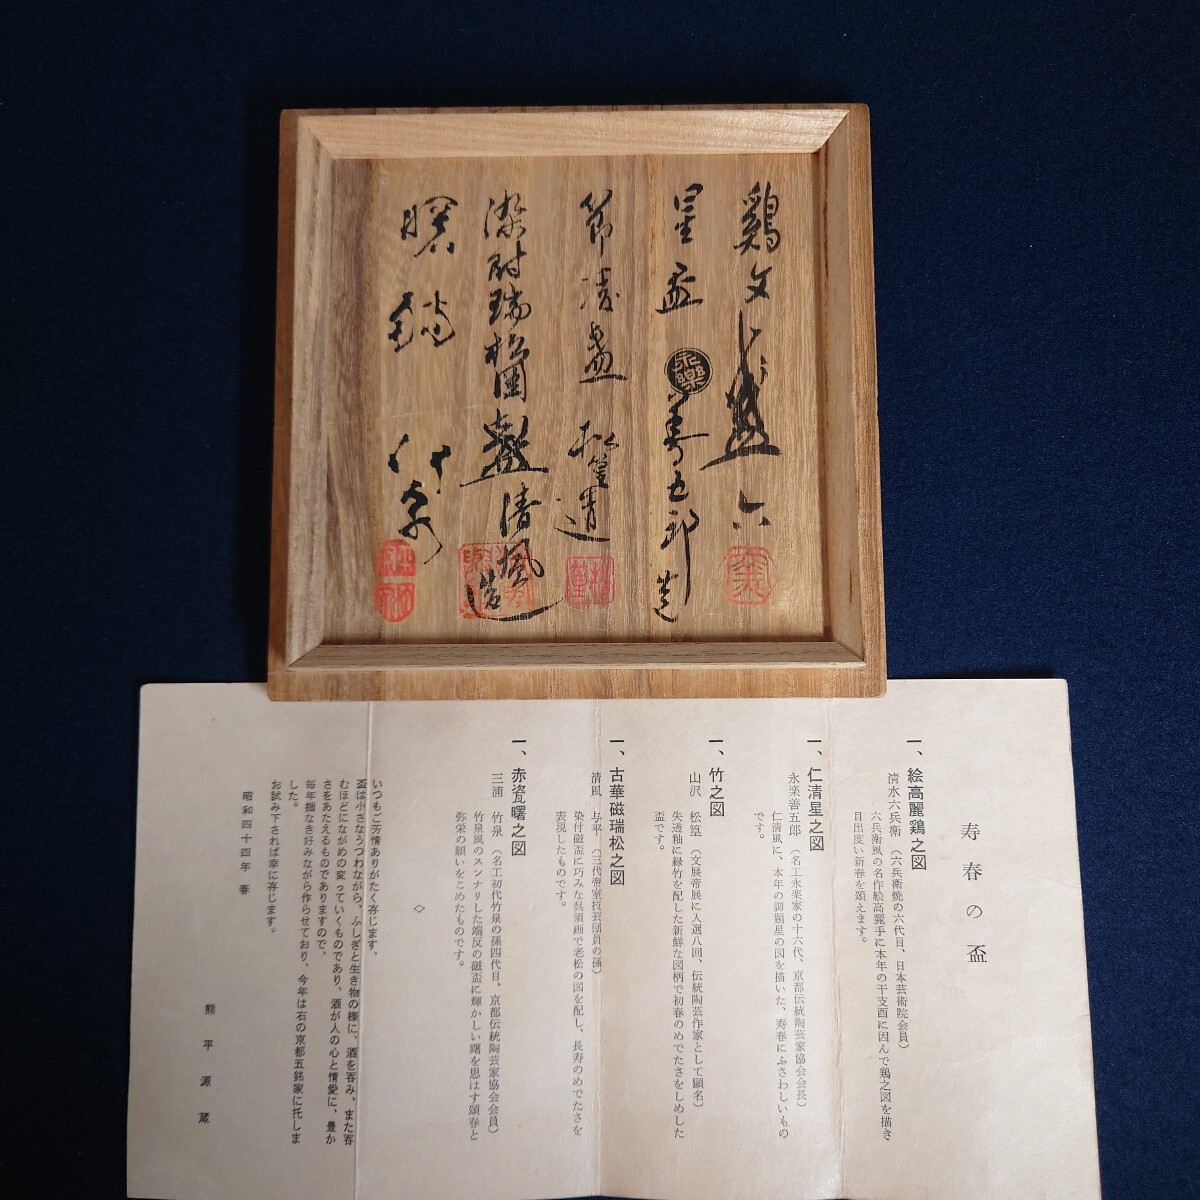 鶏文
盃 六
星盃
永樂
善五郎造
節凌盞
松篁造
松篁
染附瑞松図盞
清風造
曙
竹泉
寿春の盃
一、絵高麗鶏之図
清水六兵衛(六兵衛焼の六代目、日本芸術院会員)
六兵衛風の名作絵高麗手に本年の干支酉に因んで鶏之図を描き
目出度い新春を頌えます。
一、仁清星之図
永楽善五郎(名工永楽家の十六代、京都伝統陶芸家協会会長)
仁清風に、本年の御題星の図を描いた、寿春にふさわしいもの
です。
一、竹之図
山沢 松篁(文展帝展に入選八回、伝統陶芸作家として顕名)
失透釉に緑竹を配した新鮮な図柄で初春のめでたさをしめした
盃です。
一、古華磁瑞松之図
清風 与平(三代帝室技芸団員の孫)
染付磁盃に巧みな呉須画で老松の図を配し、長寿のめでたさを
表現したものです。
一、赤瓷曙之図
三浦 竹泉(名工初代竹泉の孫四代目、京都伝統陶芸家協会会員)
竹泉風のスンナリした端反の磁盃に輝かしい曙を思はす頌春と
弥栄の願いをこめたものです。
◇
いつもご芳情ありがたく存じます、
盃は小さなうつわながら、ふしぎと生き物の様に、酒を呑み、また呑
むほどにながめの変っていくものであり、酒が人の心と情愛に、豊か
さをあたえるものでありますので、
毎年拙なき好みながら作らせており、今年は右の京都五銘家に托しま
した。
お試み下されば幸に存じます。
昭和四十四年 春
熊平源蔵